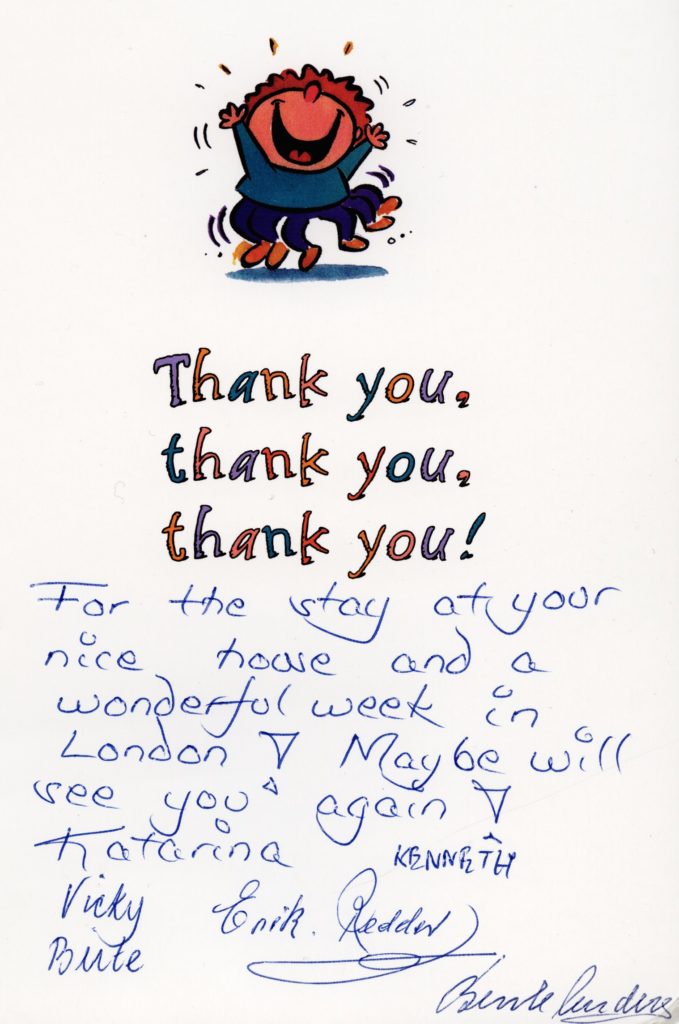 Thank you,
thank you,
thank you!
For the stay at your
nice house and a
wonderful week in
London! Maybe will
see you again!
Katarina KENNETH
Vicky Erik.
Birte